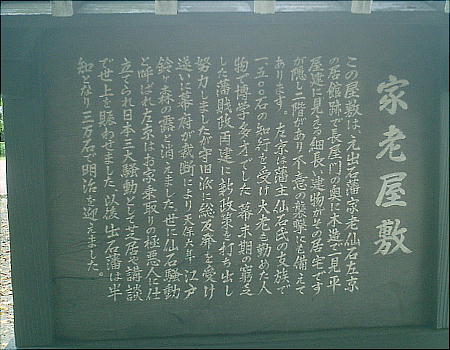 家老屋敷
この屋敷は、元出石藩家老仙石左京
の居館跡で長屋門の奥に木造で一見平
屋建に見える細長い建物がその居宅です
が隠し二階があり不意の襲撃にも備えて
あります。左京は藩主仙石氏の支族で
一五〇〇石の知行を受け大老も勤めた人
物で博学多才でした。幕末期の窮乏
した藩財政再建に新政策を打ち出し
努力しましたが守旧派に総反撃を受け
遂いに幕府が裁断により天保六年江戸
鈴ヶ森の露と消えました。世に仙石騒動
と呼ばれ左京はお家乗取りの極悪人に仕
立てられ日本三大騒動として芝居や講談
で世上を賑わせました。以後出石藩は半
知となり三万石で明治を迎えました。